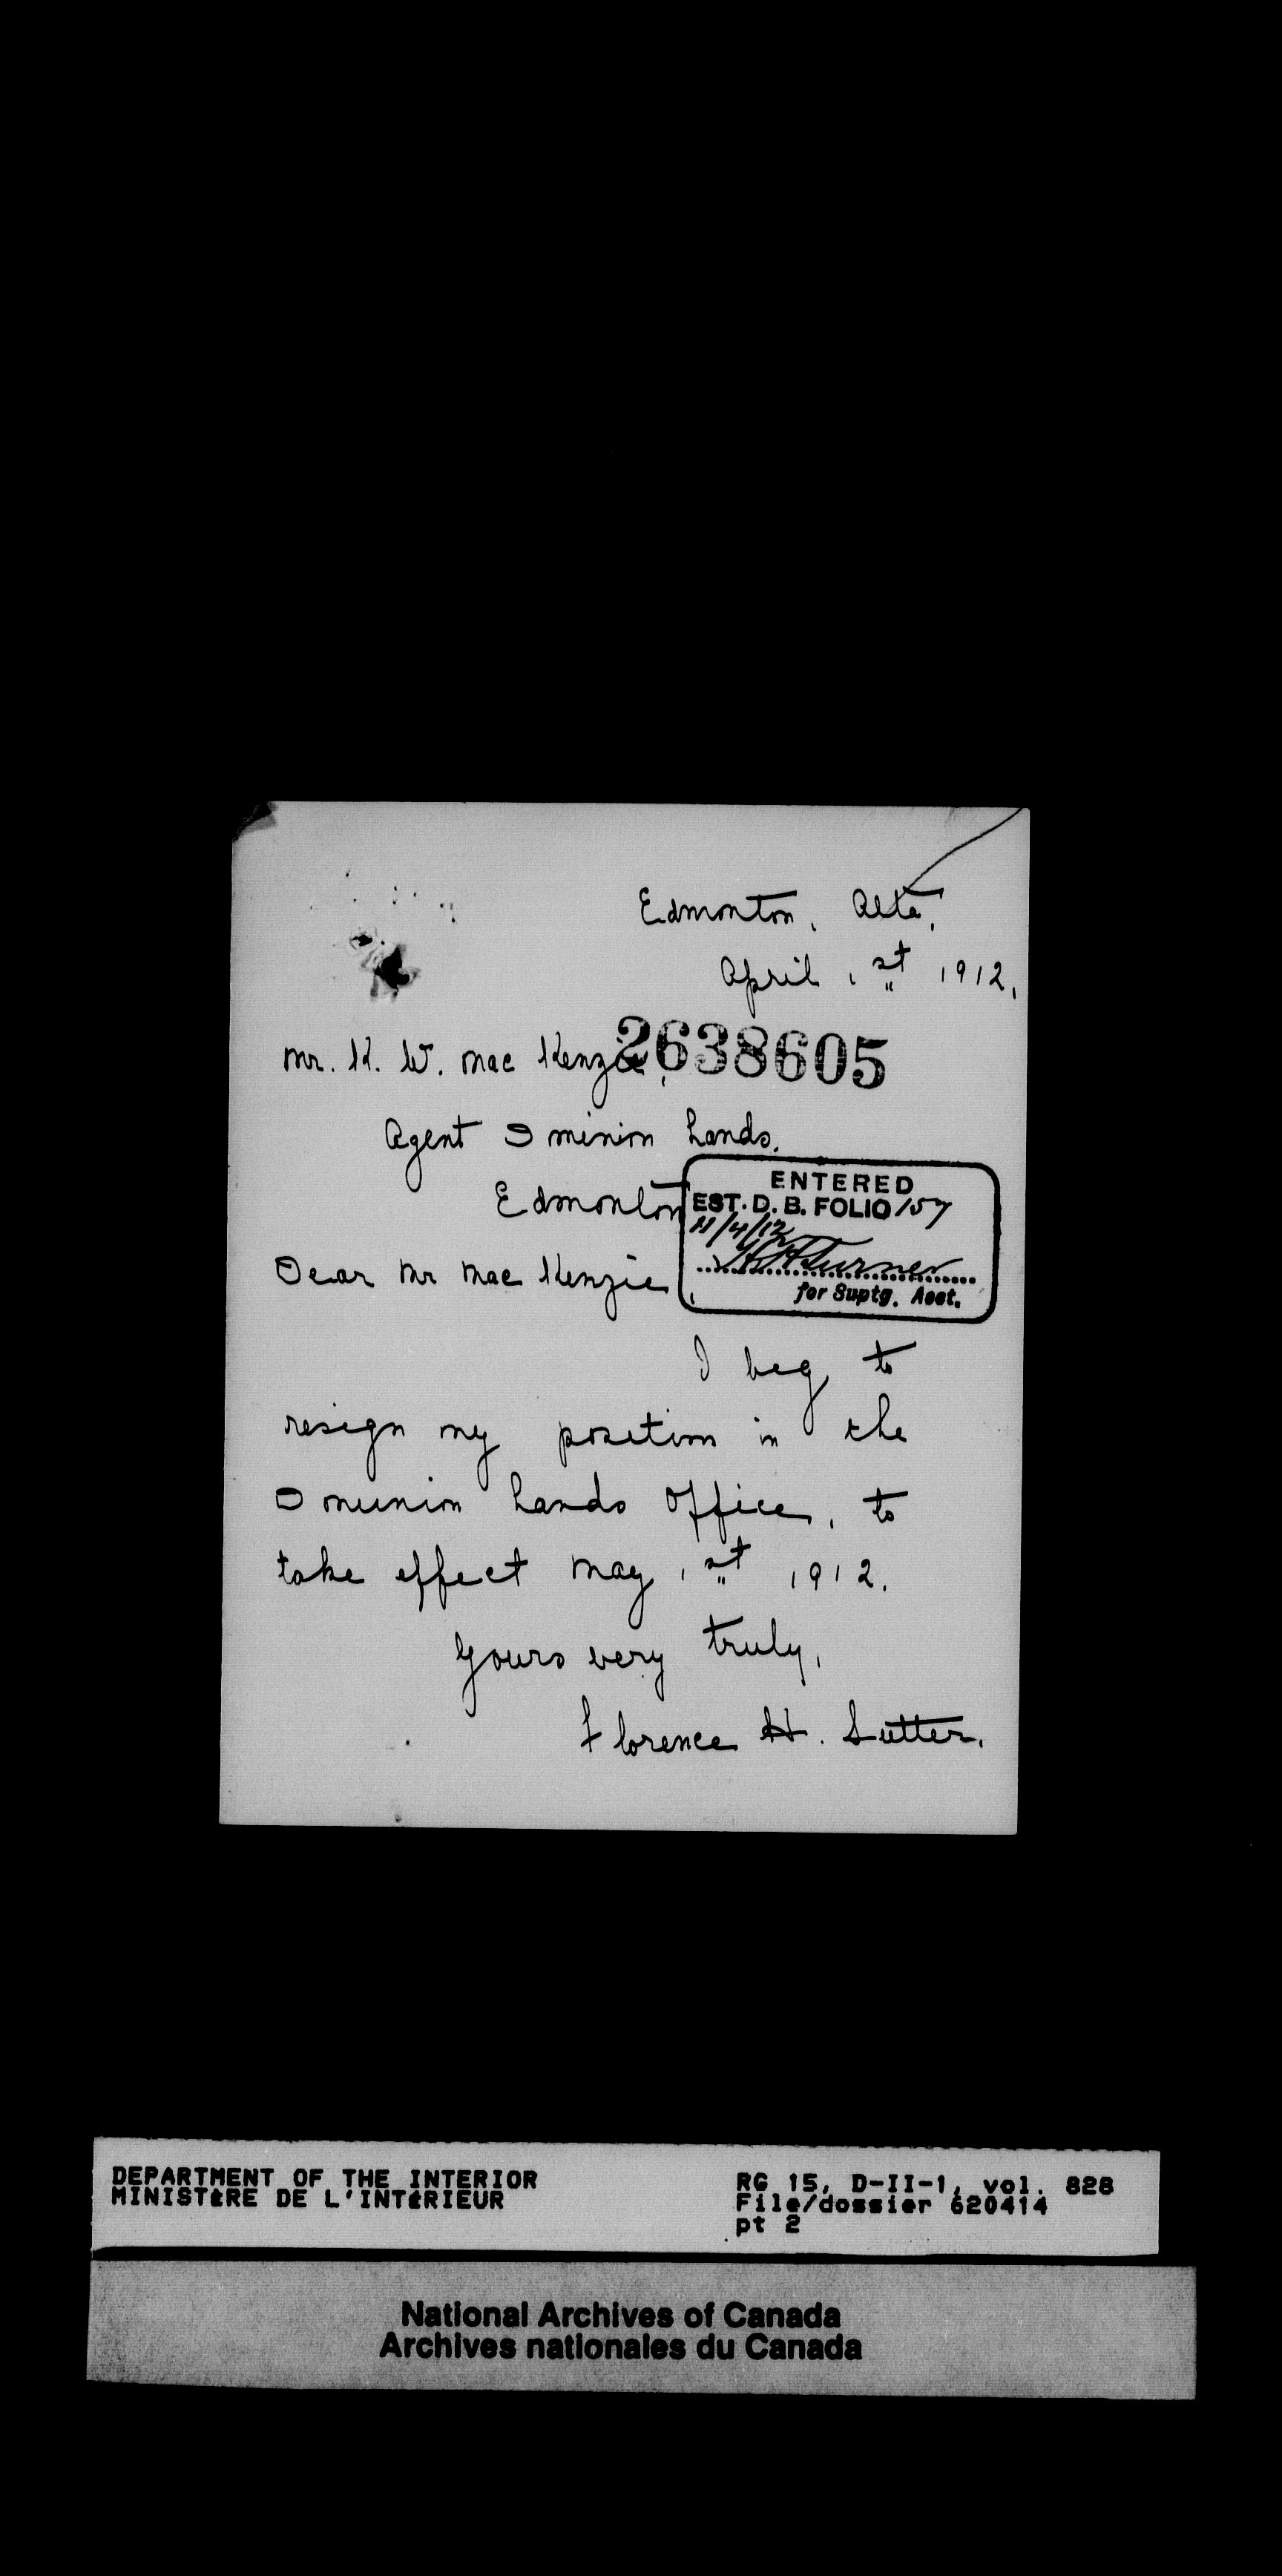 Edmonton, Alta,
April 1st 1912,
Mr. K. W. MacKenzie,
2638605
Agent Dominion Lands,
Edmonton
ENTERED
EST. D. B. FOLIO 157
11/4/12
Turner
for Suptg. Acct.
Dear Mr MacKenzie,
I beg to
resign my position in the
Dominion Lands Office, to
take effect May 1st 1912.
Yours very truly,
Florence H. Sutter.
DEPARTMENT OF THE INTERIOR
MINISTÈRE DE L'INTÉRIEUR
RG 15, D-II-1, vol. 828
File/dossier 620414
pt 2
National Archives of Canada
Archives nationales du Canada